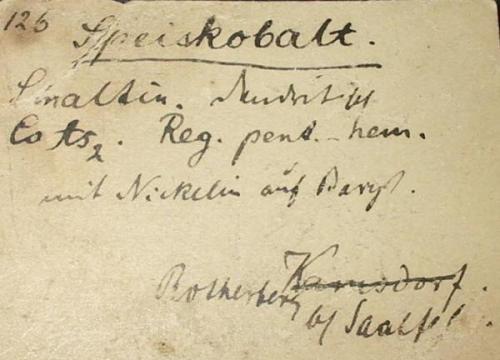 126
Speiskobalt.
Smaltin. Dendritisch
Co As2. Reg. pent.-hem.
mit Nickelin auf Baryt.
Rotherberg Kamsdorf.
b/ Saalfel.